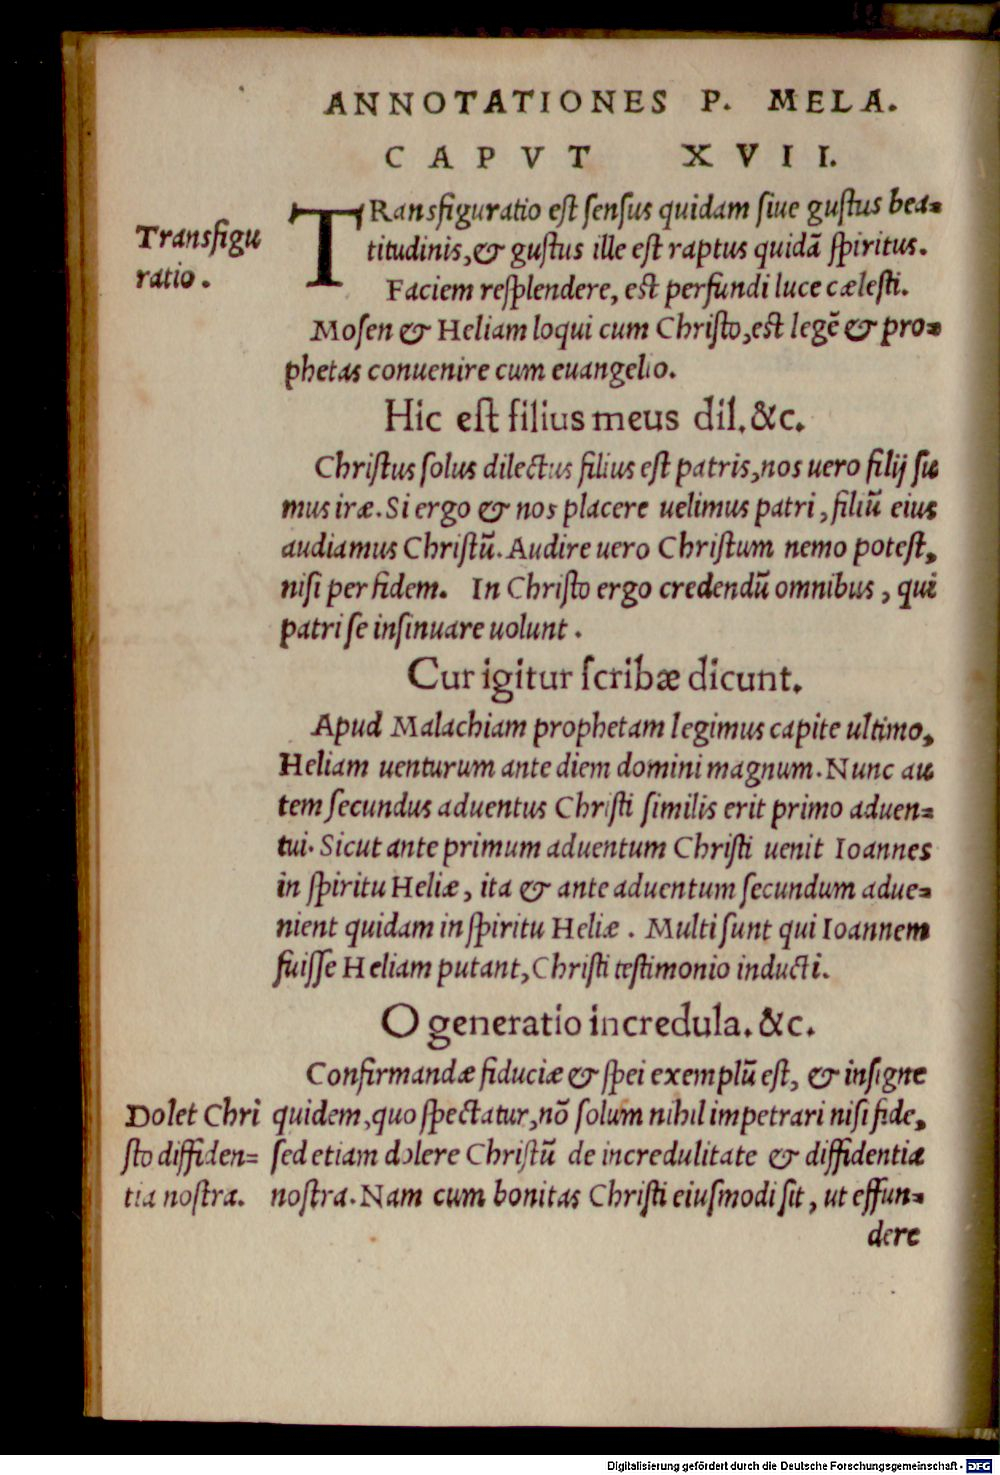 ANNOTATIONES P. MELA.
CAPVT XVII.
Transfigu
ratio.
TRansfiguratio est sensus quidam siue gustus bea=
titudinis, & gustus ille est raptus quidã spiritus.
Faciem resplendere, est perfundi luce cælesti.
Mosen & Heliam loqui cum Christo, est legẽ & pro=
phetas conuenire cum euangelio.
Hic est filius meus dil. &c.
Christus solus dilectus filius est patris, nos uero filij su
mus iræ. Si ergo & nos placere uelimus patri, filiũ eius
audiamus Christũ. Audire uero Christum nemo potest,
nisi per fidem. In Christo ergo credendũ omnibus, qui
patri se insinuare uolunt.
Cur igitur scribæ dicunt.
Apud Malachiam prophetam legimus capite ultimo,
Heliam uenturum ante diem domini magnum. Nunc au
tem secundus aduentus Christi similis erit primo aduen=
tui. Sicut ante primum aduentum Christi uenit Ioannes
in spiritu Heliæ, ita & ante aduentum secundum adue=
nient quidam in spiritu Heliæ. Multi sunt qui Ioannem
fuisse Heliam putant, Christi testimonio inducti.
O generatio incredula. &c.
Confirmandæ fiduciæ & spei exemplũ est, & insigne
Dolet Chri
sto diffiden=
tia nostra.
quidem, quo spectatur, nõ solum nihil impetrari nisi fide,
sed etiam dolere Christũ de incredulitate & diffidentia
nostra. Nam cum bonitas Christi eiusmodi sit, ut effun=
dere
Digitalisierung gefördert durch die Deutsche Forschungsgemeinschaft - DFG